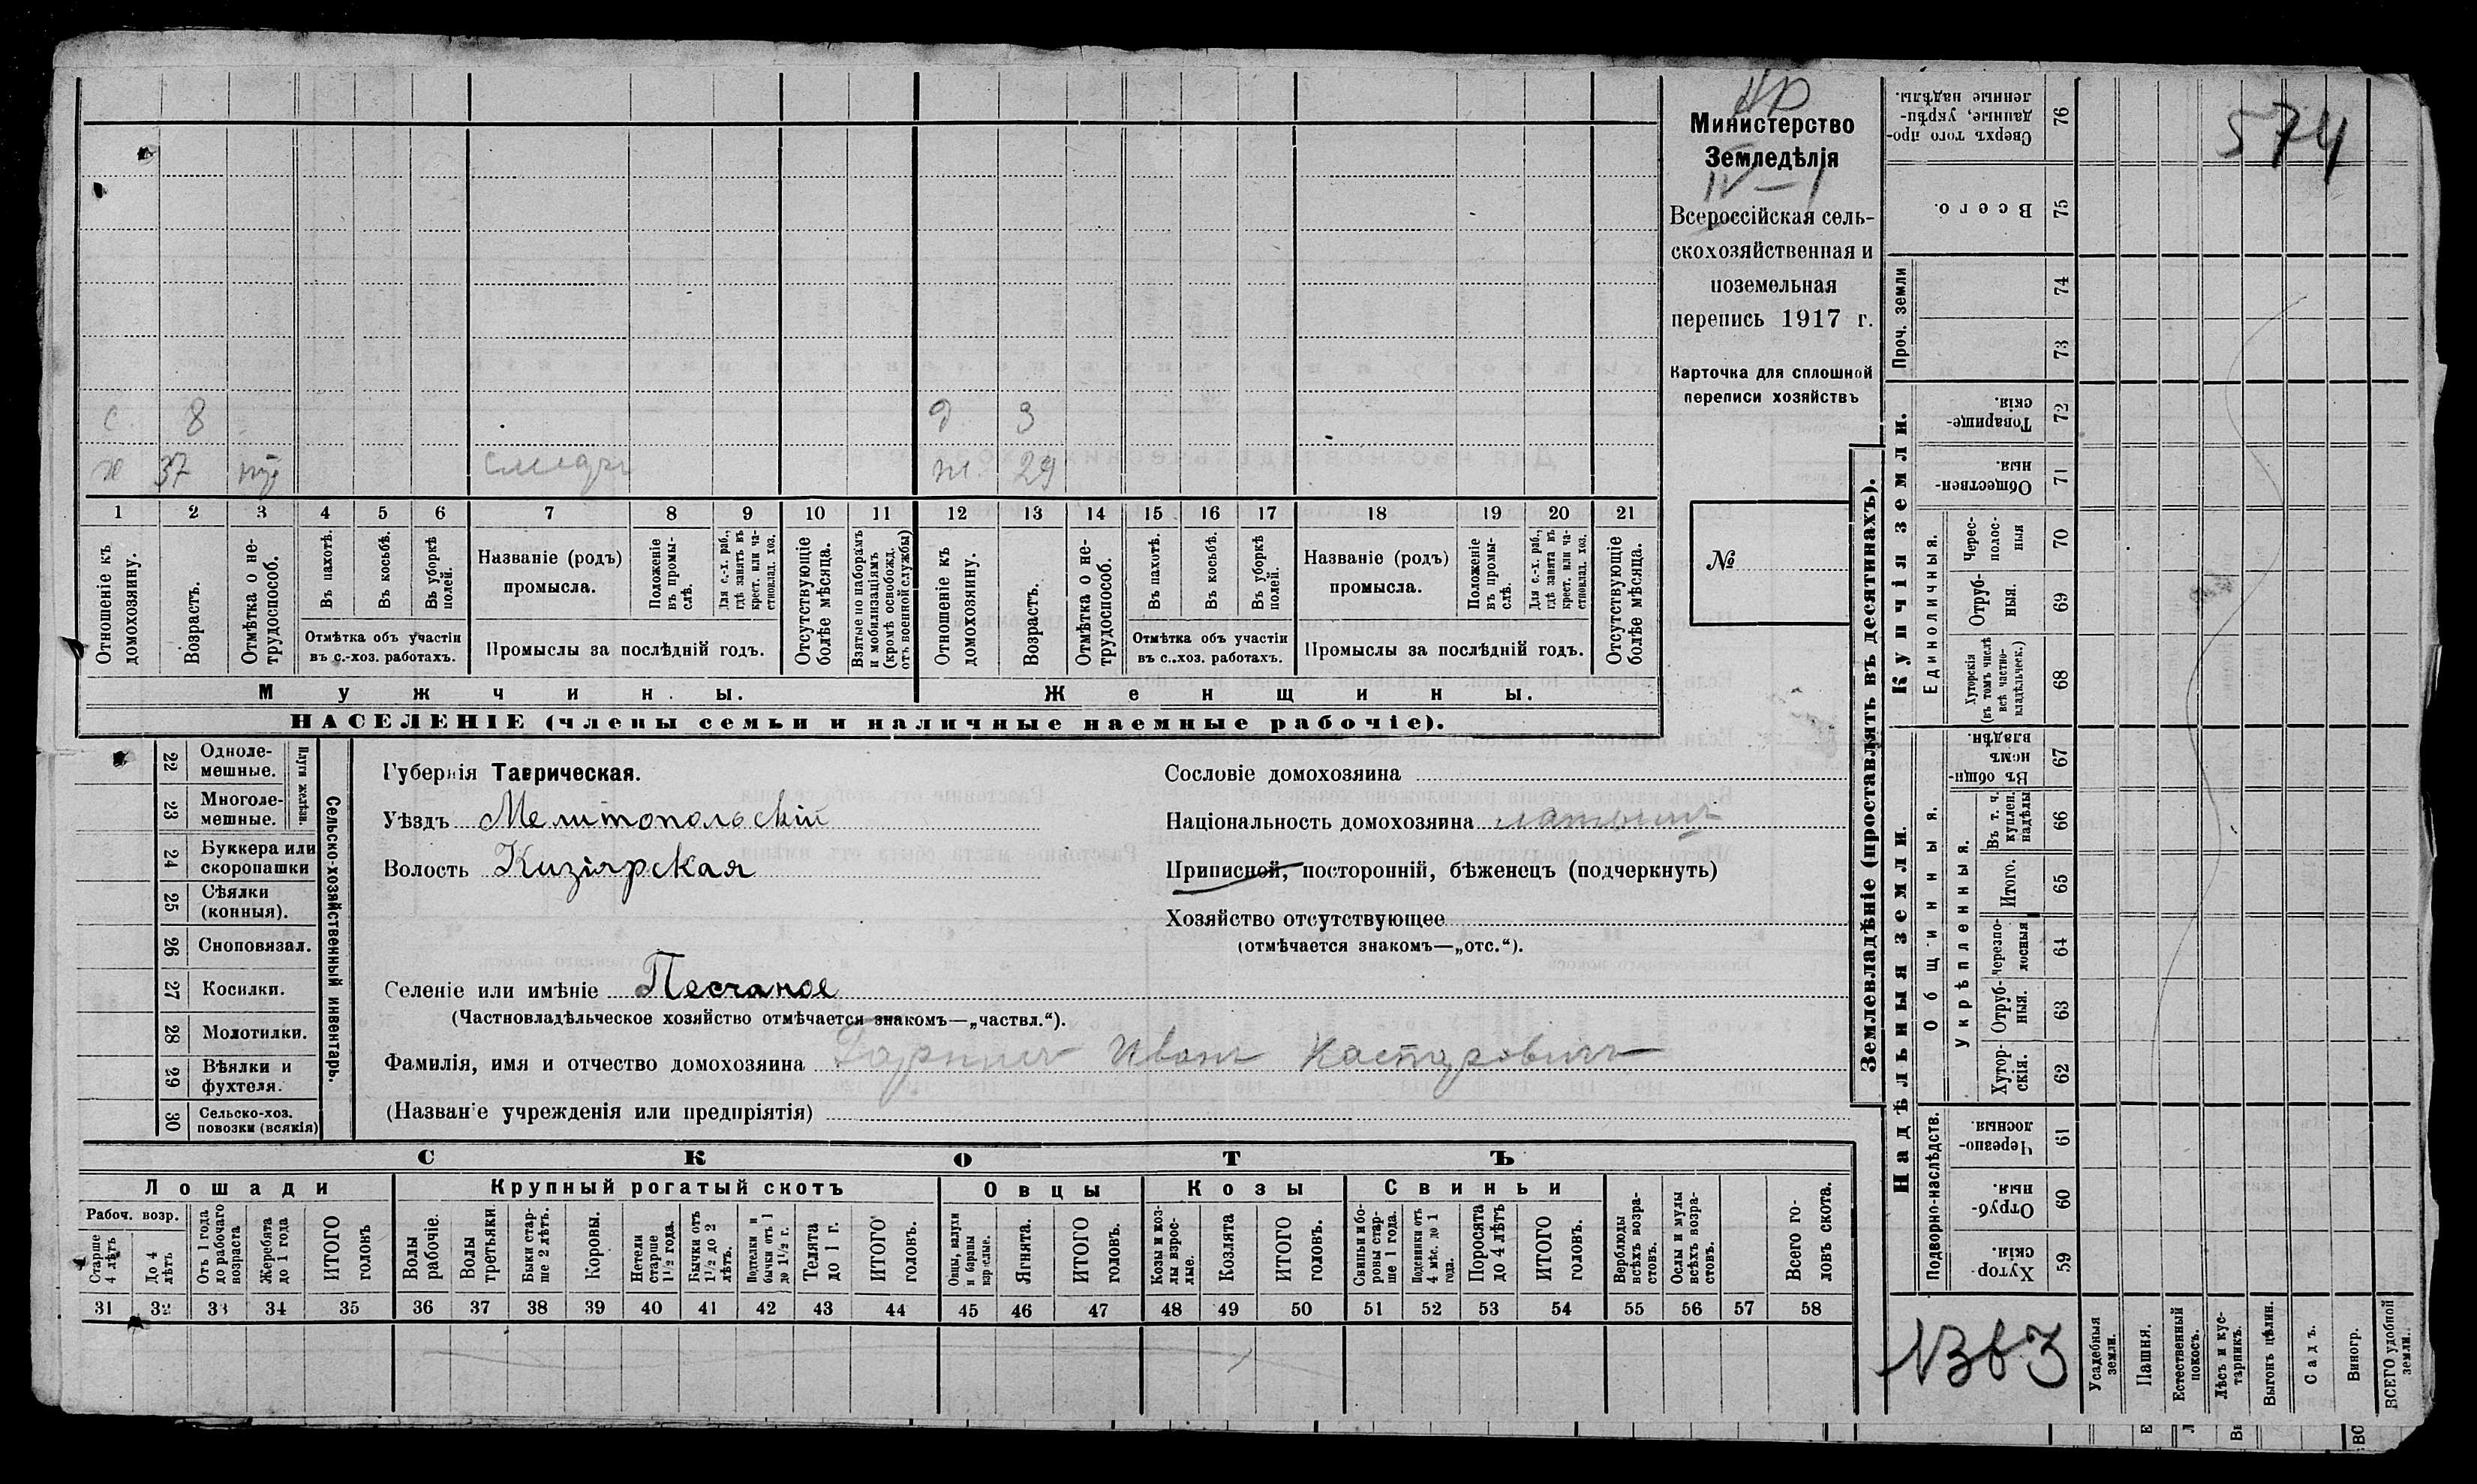 НР
Министерство
Земледѣлія
IV — 1
Всероссійская сель-
скохозяйственная и
поземельная
перепись 1917 г.
Карточка для сплошной
переписи хозяйствъ
№
574
с 8 д 3
х 37 ж. 29
1 2 3 4 5 6 7 8 9 10 11 12 13 14 15 16 17 18 19 20 21
Отношеніе къ домохозяину.
Возрастъ.
Отмѣтка о не-трудоспособ.
Въ пахотѣ.
Въ косьбѣ.
Въ уборкѣ полей.
Отмѣтка объ участіи
въ с.-хоз. работахъ.
Названіе (родъ)
промысла.
Положеніе въ промы-слѣ.
Для с.-х. раб., гдѣ занятъ въ крест. или ча-стновлад. хоз.
Промыслы за послѣдній годъ.
Отсутствующіе болѣе мѣсяца.
Взятые по наборамъ и мобилизаціямъ (кромѣ освобожд. отъ военной службы)
Отношеніе къ домохозяину.
Возрастъ.
Отмѣтка о не-трудоспособ.
Въ пахотѣ.
Въ косьбѣ.
Въ уборкѣ полей.
Отмѣтка объ участіи
въ с.-хоз. работахъ.
Названіе (родъ)
промысла.
Положеніе въ промы-слѣ.
Для с.-х. раб., гдѣ занята въ крест. или ча-стновлад. хоз.
Промыслы за послѣдній годъ.
Отсутствующіе болѣе мѣсяца.
Мужчины.
Женщины.
НАСЕЛЕНІЕ (члены семьи и наличные наемные рабочіе).
22 Одноле-мешные.
23 Многоле-мешные.
Плуги желѣзн.
24 Буккера или скоропашки
25 Сѣялки (конныя).
26 Сноповязал.
27 Косилки.
28 Молотилки.
29 Вѣялки и фухтеля.
30 Сельско-хоз. повозки (всякія)
Сельско-хозяйственный инвентарь.
Губернія Таврическая.
Уѣздъ Мелитопольскій
Волость Кизіярская
Селеніе или имѣніе Песчаное
(Частновладѣльческое хозяйство отмѣчается знакомъ—„частвл.“).
Фамилія, имя и отчество домохозяина Иванъ Каспаровичъ
(Названіе учрежденія или предпріятія)
Сословіе домохозяина
Національность домохозяина латышъ
Приписной, посторонній, бѣженецъ (подчеркнуть)
Хозяйство отсутствующее
(отмѣчается знакомъ—„отс.“).
СКОТЪ
Лошади
Крупный рогатый скотъ
Овцы
Козы
Свиньи
Рабоч. возр.
Старше 4 лѣтъ
До 4 лѣтъ
Отъ 1 года до рабочаго возраста
Жеребята до 1 года
ИТОГО головъ
Волы рабочіе.
Волы третьяки.
Быки стар-ше 2 лѣтъ.
Коровы.
Нетели старше 1½ года.
Бычки отъ 1½ до 2 лѣтъ.
Подтелки и бычки отъ 1 до 1½ г.
Телята до 1 г.
ИТОГО головъ.
Овцы, валухи и бараны взрослые.
Ягнята.
ИТОГО головъ.
Козы и коз-лы взрос-лые.
Козлята
ИТОГО головъ.
Свиньи и бо-ровы стар-ше 1 года.
Подсвинки отъ 4 мѣс. до 1 года.
Поросята до 4 лѣтъ
ИТОГО головъ.
Верблюды всѣхъ возра-стовъ.
Ослы и мулы всѣхъ возра-стовъ.
Всего го-ловъ скота.
31 32 33 34 35 36 37 38 39 40 41 42 43 44 45 46 47 48 49 50 51 52 53 54 55 56 57 58
Землевладѣніе (проставлять въ десятинахъ).
Купчія земли.
Надѣльныя земли.
Сверхъ того про-данные, укрѣп-ленные надѣлы. 76
Всего. 75
Проч. земли 74 73
Товарище-скія. 72
Обществен-ныя. 71
Единоличныя.
Черес-полос-ныя 70
Отруб-ныя. 69
Хуторскія (въ томъ числѣ всѣ частно-владѣльчек.) 68
Общинныя.
Въ общи-номъ владѣн. 67
Укрѣпленныя.
Въ т. ч. куплен. надѣлы 66
Итого. 65
Черезпо-лосныя 64
Отруб-ныя. 63
Хутор-скія. 62
Подворно-наслѣдств.
Черезпо-лосныя. 61
Отруб-ныя. 60
Хутор-скія. 59
Усадебныя земли.
Пашня.
Естественный покосъ.
Лѣсъ и кус-тарникъ.
Выгонъ цѣлин.
Садъ.
Виногр.
ВСЕГО удобной земли.